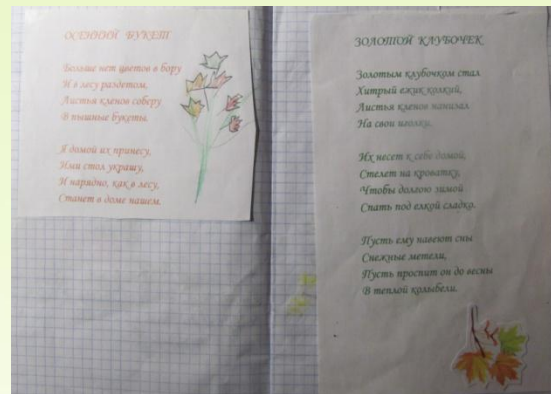 ОСЕННИЙ БУКЕТ
Больше нет цветов в бору
И в лесу раздетом,
Листья кленов соберу
В пышные букеты.
Я домой их принесу,
Ими стол украшу,
И нарядно, как в лесу,
Станет в доме нашем.
ЗОЛОТОЙ КЛУБОЧЕК
Золотым клубочком стал
Хитрый ежик колкий,
Листья кленов нанизал
На свои иголки.
Их несет к себе домой,
Стелет на кроватку,
Чтобы долгою зимой
Спать под елкой сладко.
Пусть ему навеют сны
Снежные метели,
Пусть проспит он до весны
В теплой колыбели.